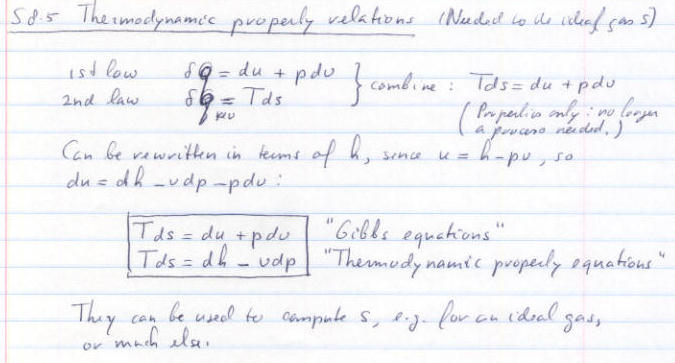 S8.5 Thermodynamic property relations (Needed to do ideal gas s)
1st law δq = du + pdv } combine : Tds = du + pdv
2nd law δq_rev = Tds (Properties only : no longer
a process needed.)
Can be rewritten in terms of h, since u = h - pv, so
du = dh - vdp - pdv :
Tds = du + pdv "Gibbs equations"
Tds = dh - vdp "Thermodynamic property equations"
They can be used to compute s, e.g. for an ideal gas,
or much else.